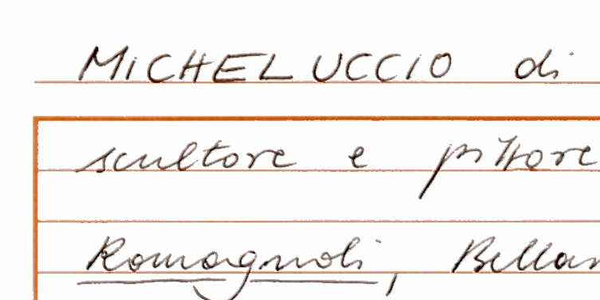 MICHELUCCIO di
scultore e pittore
Romagnoli, Bellar